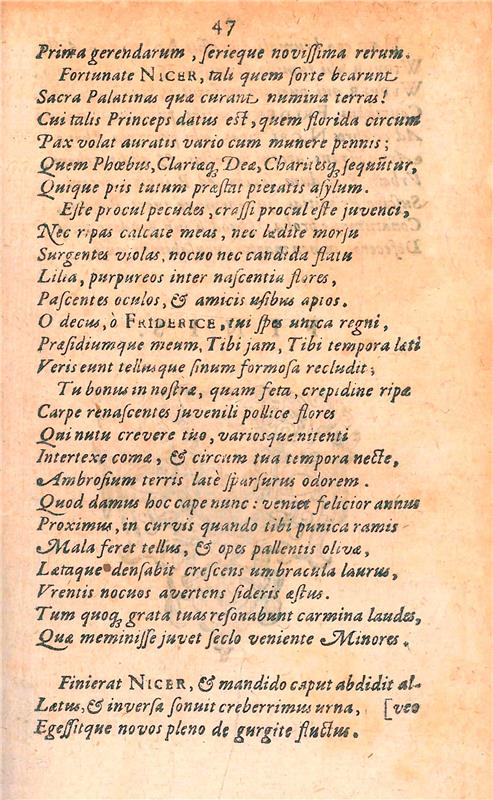 47
Prima gerendarum, serieque novissima rerum.
Fortunate NICER, tali quem sorte bearunt
Sacra Palatinas quæ curant numina terras!
Cui talis Princeps datus est, quem florida circum
Pax volat auratis vario cum munere pennis;
Quem Phœbus, Clariæq́; Deæ, Charitesq́; sequũtur,
Quique piis tutum præstat pietatis asylum.
Este procul pecudes, crassi procul este juvenci,
Nec ripas calcate meas, nec lædite morsu
Surgentes violas, nocuo nec candida flatu
Lilia, purpureos inter nascentia flores,
Pascentes oculos, & amicis usibus aptos.
O decus, ò FRIDERICE, tui spes unica regni,
Præsidiumque meum, Tibi jam, Tibi tempora læti
Veris eunt tellusque sinum formosa recludit;
Tu bonus in nostræ, quam feta, crepidine ripæ
Carpe renascentes juvenili pollice flores
Qui nutu crevere tuo, variosque nitenti
Intertexe comæ, & circum tua tempora necte,
Ambrosium terris latè sparsurus odorem.
Quod damus hoc cape nunc: veniet felicior annus
Proximus, in curvis quando tibi punica ramis
Mala feret tellus, & opes pallentis olivæ,
Lætaque densabit crescens umbracula laurus,
Vrentis nocuos avertens sideris æstus.
Tum quoq́; grata tuas resonabunt carmina laudes,
Quæ meminisse juvet seclo veniente Minores.
Finierat NICER, & mandido caput abdidit al-
Lætus, & inversa sonuit creberrimus urna, [veo
Egessitque novos pleno de gurgite fluctus.